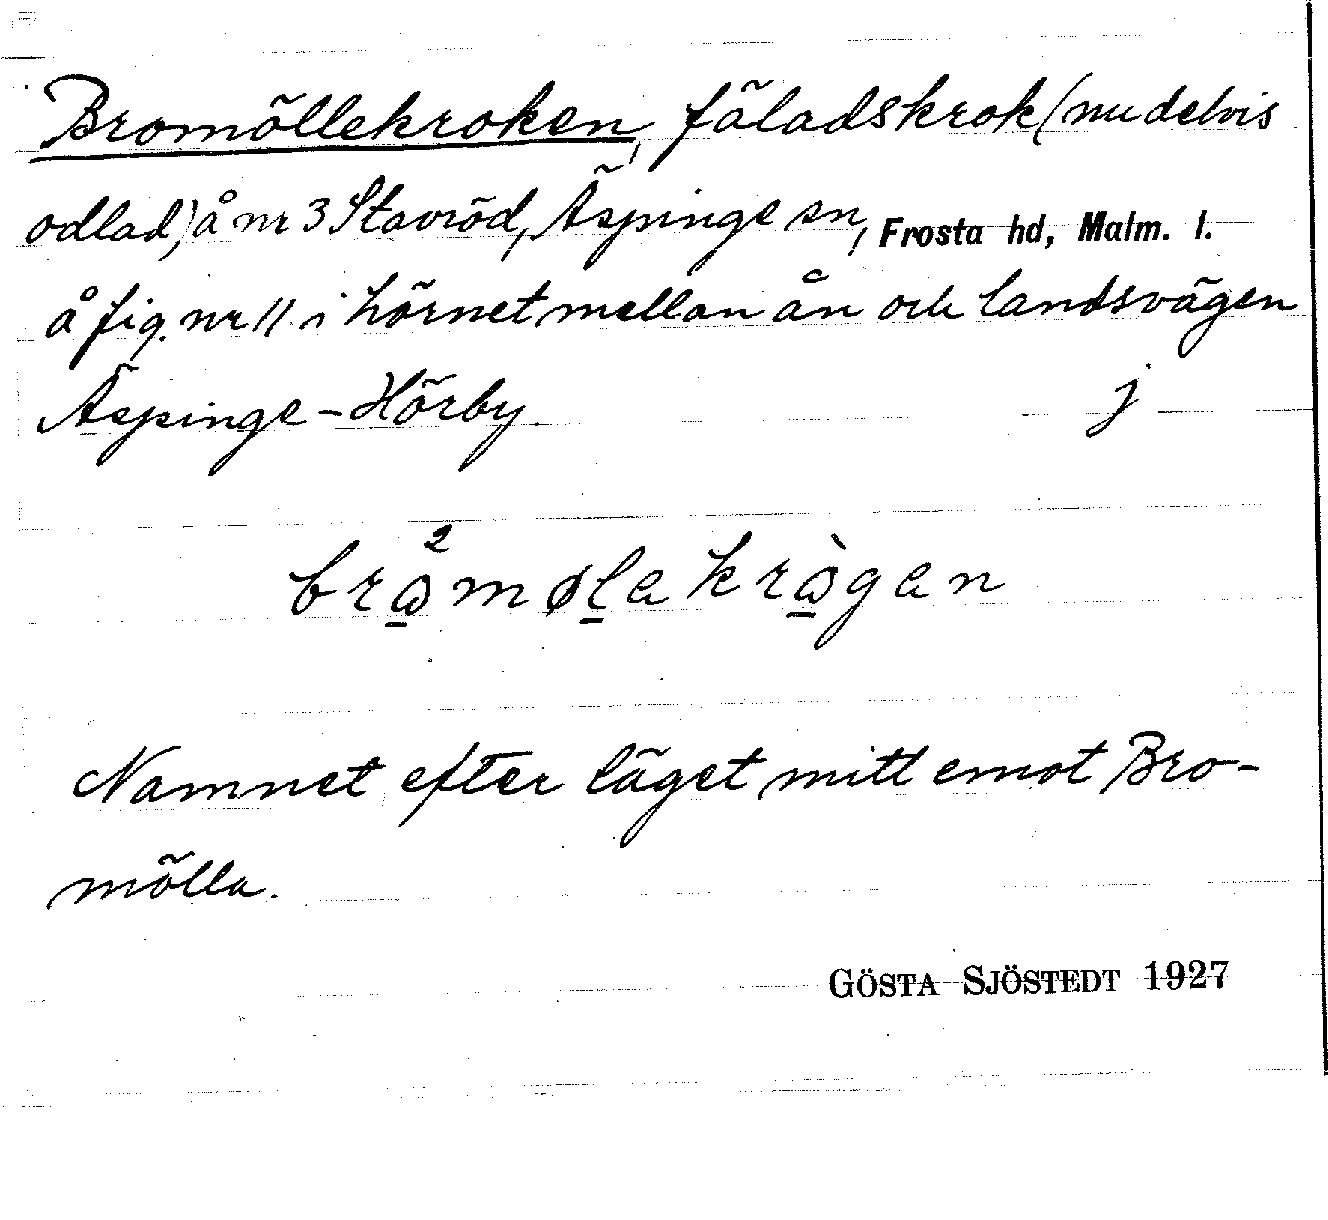 Bromöllekroken, fäladskrok (nu delvis
odlad) å nr 3 Stavröd, Äspinge sn, Frosta hd, Malm. l.
å fig. nr 11 i hörnet mellan ån och landsvägen
Äspinge-Hörby j
Namnet efter läget mitt emot Bro-
mölla.
GÖSTA SJÖSTEDT 1927